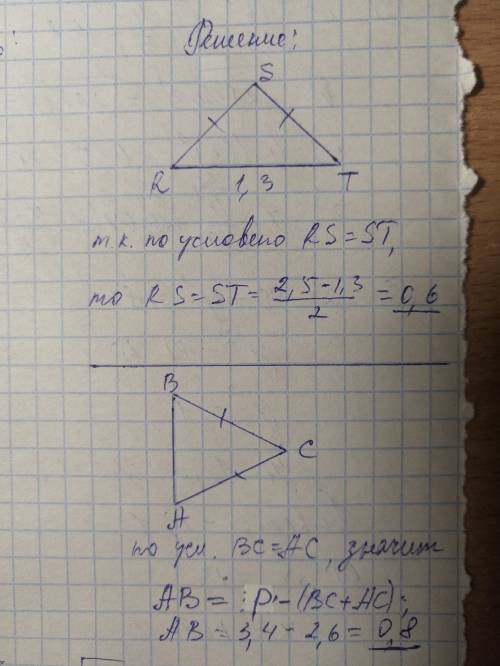 Решение:
S
R 1,3 T
т.к. по условию RS=ST,
то RS=ST= 2,5-1,3 / 2 = 0,6
B
C
A
по усл. BC=AC, значит
AB= P-(BC+AC);
AB=3,4-2,6=0,8